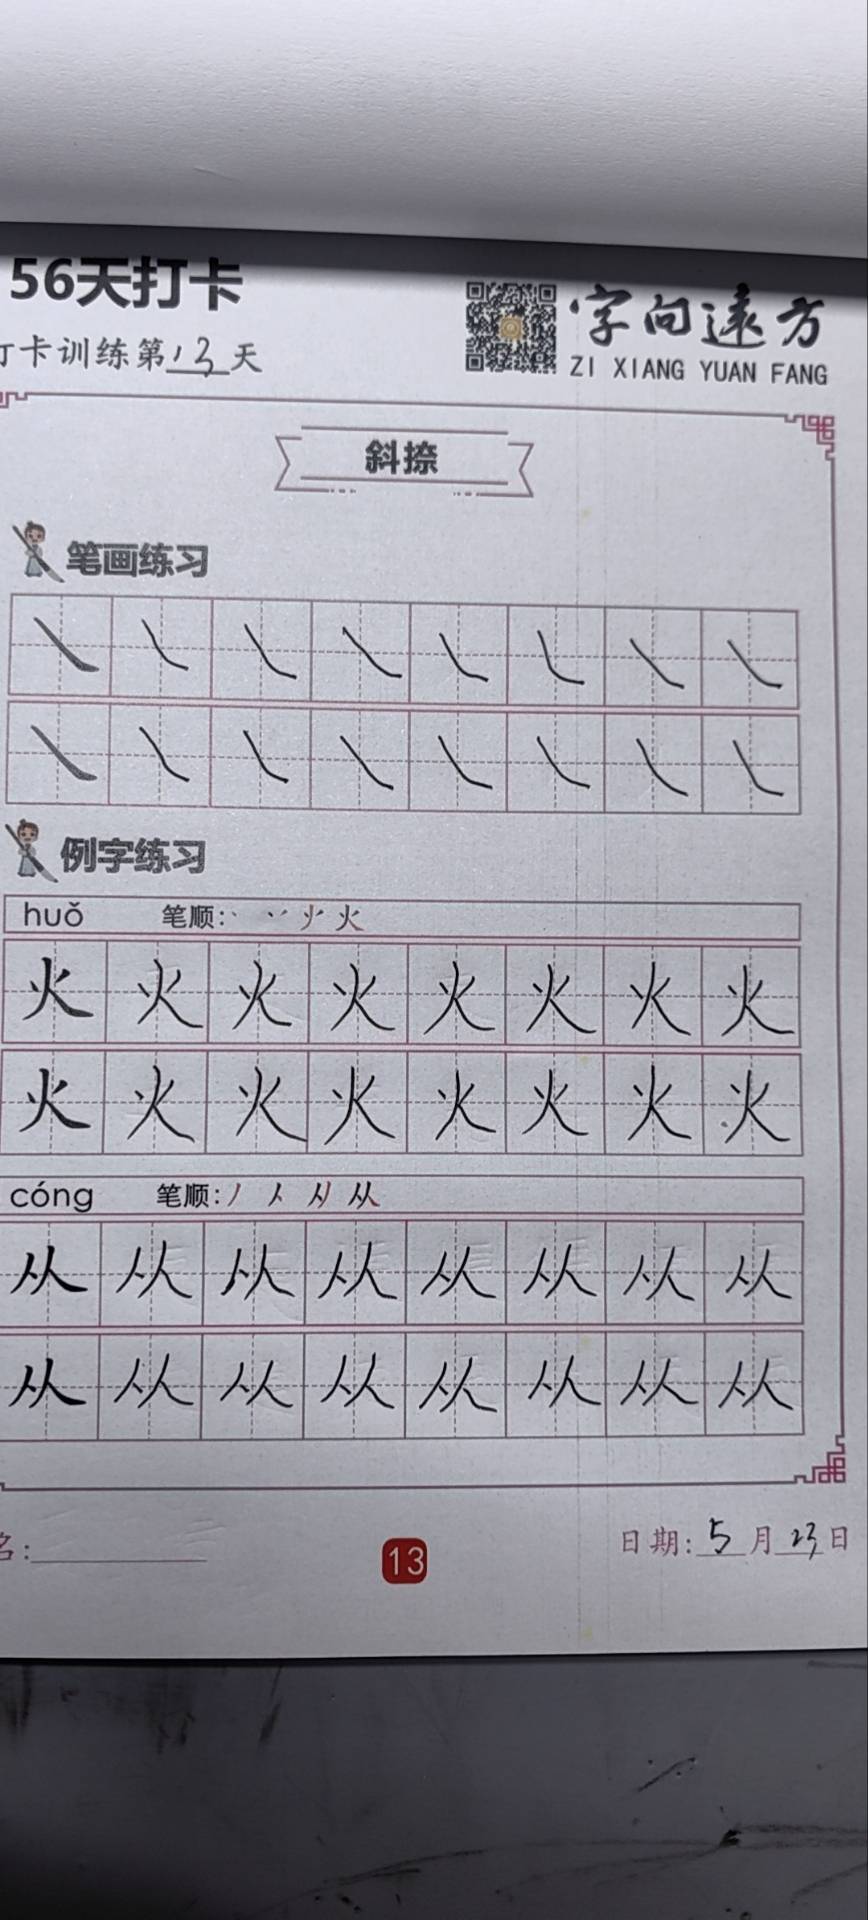 56天打卡
字向远方
打卡训练第13天
ZI XIANG YUAN FANG
斜捺
笔画练习
例字练习
huǒ 笔顺: 火
火 火 火 火 火 火 火 火
火 火 火 火 火 火 火 火
cóng 笔顺: 丿 从
从 从 从 从 从 从 从 从
从 从 从 从 从 从 从 从
名:
13
日期:5月23日